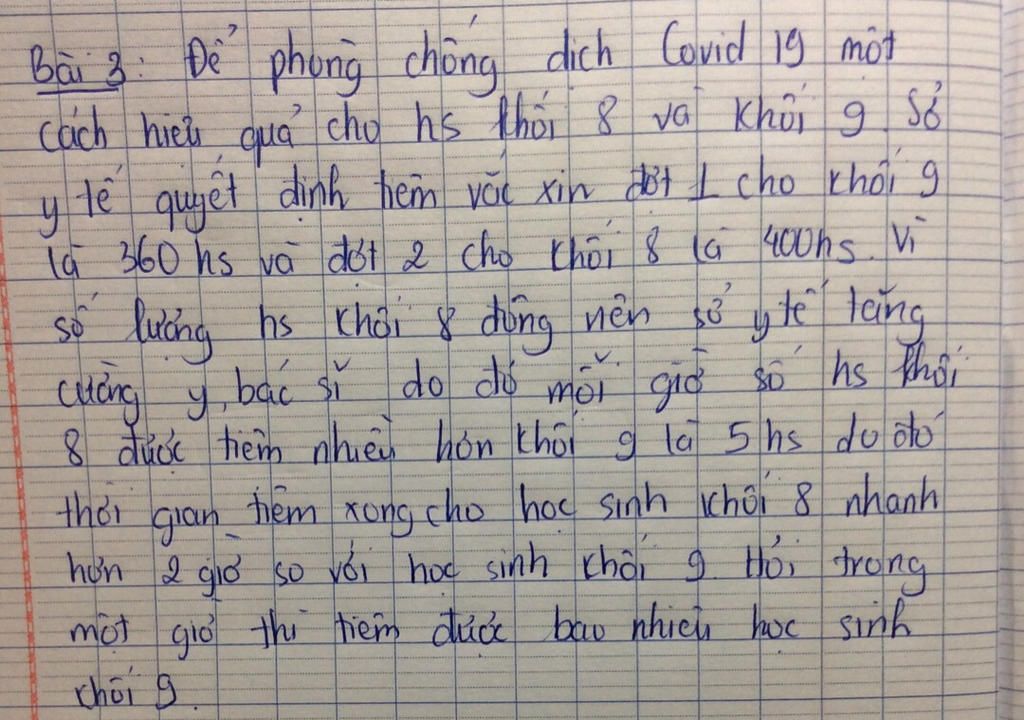 Bài 3: Để phòng chống dịch Covid 19 một
cách hiệu quả cho hs khối 8 và khối 9. Sở
y tế quyết định tiêm vắc xin đợt 1 cho khối 9
là 360 hs và đợt 2 cho khối 8 là 400hs. Vì
số lượng hs khối 8 đông nên sở y tế tăng
cường y, bác sĩ do đó mỗi giờ số hs khối
8 được tiêm nhiều hơn khối 9 là 5 hs do đó
thời gian tiêm xong cho học sinh khối 8 nhanh
hơn 2 giờ so với học sinh khối 9. Hỏi trong
một giờ thì tiêm được bao nhiêu học sinh
khối 9.